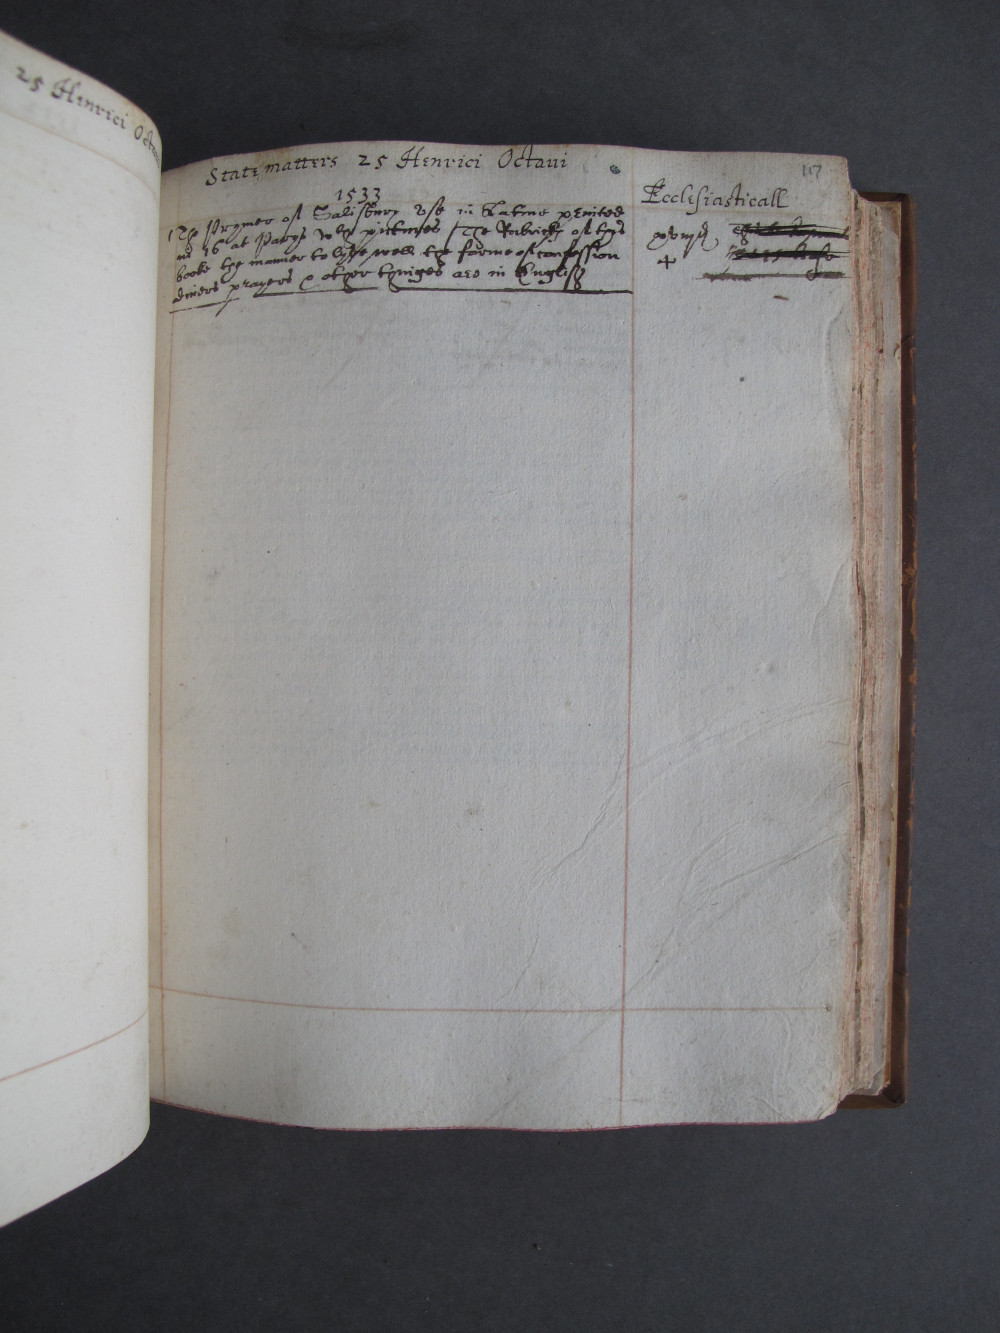 25 Henrici Octaui
State matters 25 Henrici Octaui
117
1533
Ecclesiasticall
The Prymer of Salisbury vse in Latine prented
in 16 at Parys wth pictures / The Rubricks of thys
booke the manner to lyve well the forme of confession
diuers prayers & other thinges are in English